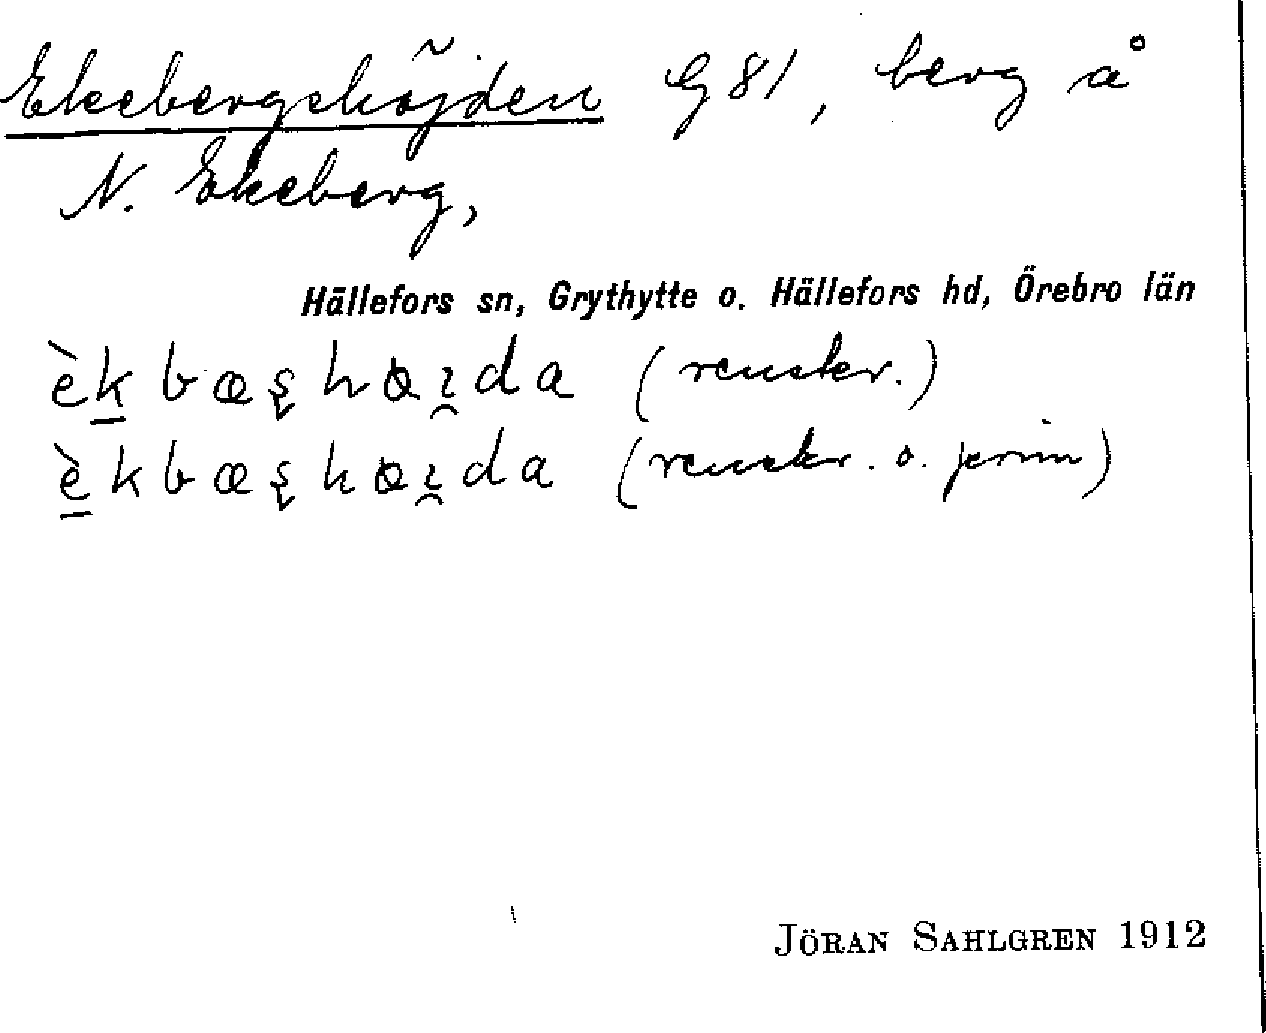 Ekebergshöjden G 81, berg å
N. Ekeberg,
Hällefors sn, Grythytte o. Hällefors hd, Örebro län
èk bœş hœı̯da (renskr.)
èkbœşhœı̯da (renskr. o. prim)
JÖRAN SAHLGREN 1912